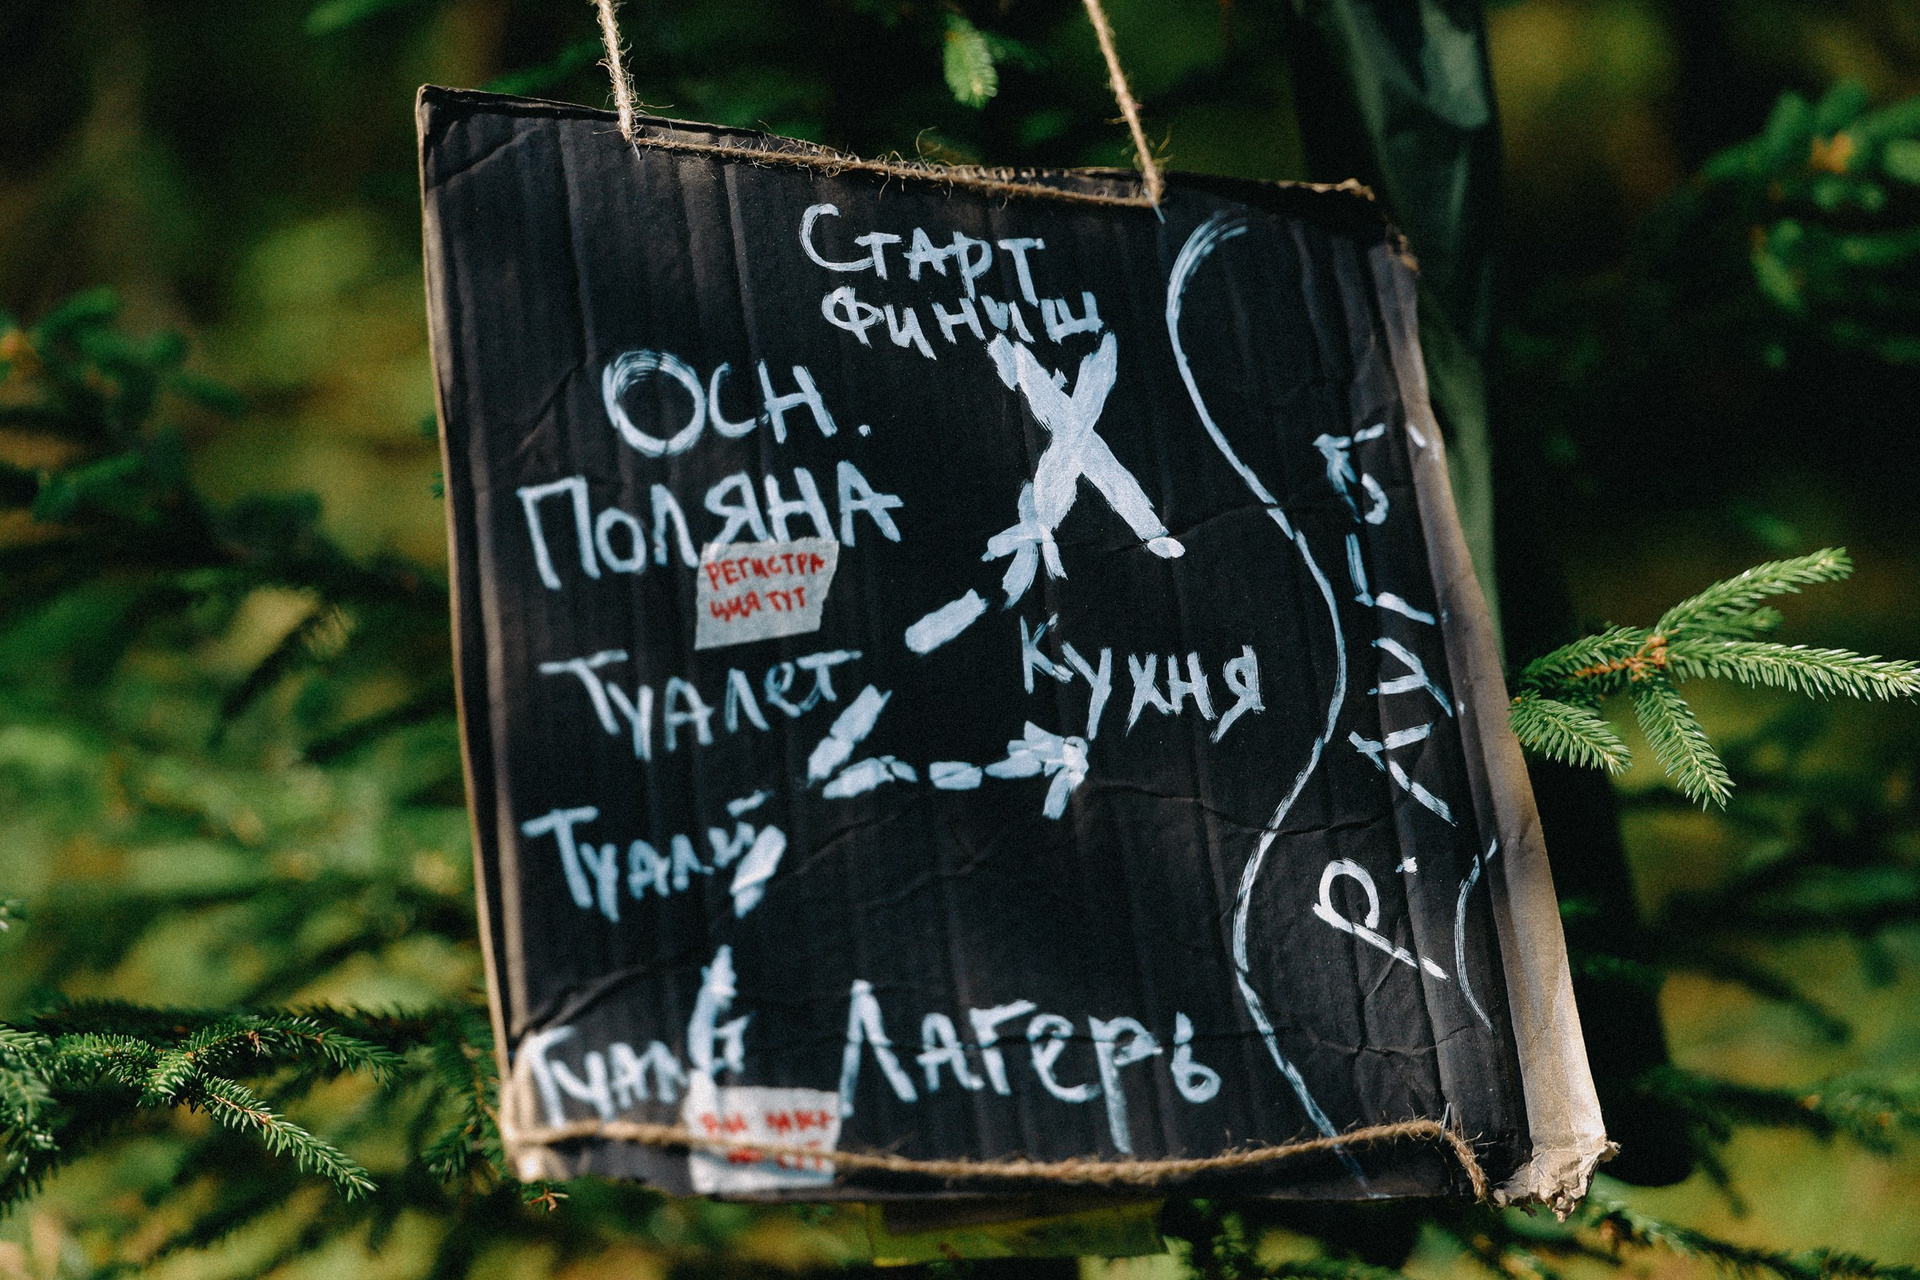 Старт
Финиш
Осн.
Поляна
РЕГИСТРА
ЦИЯ ТУТ
Туалет
Кухня
Туалет
Туалет
Лагерь
Р.